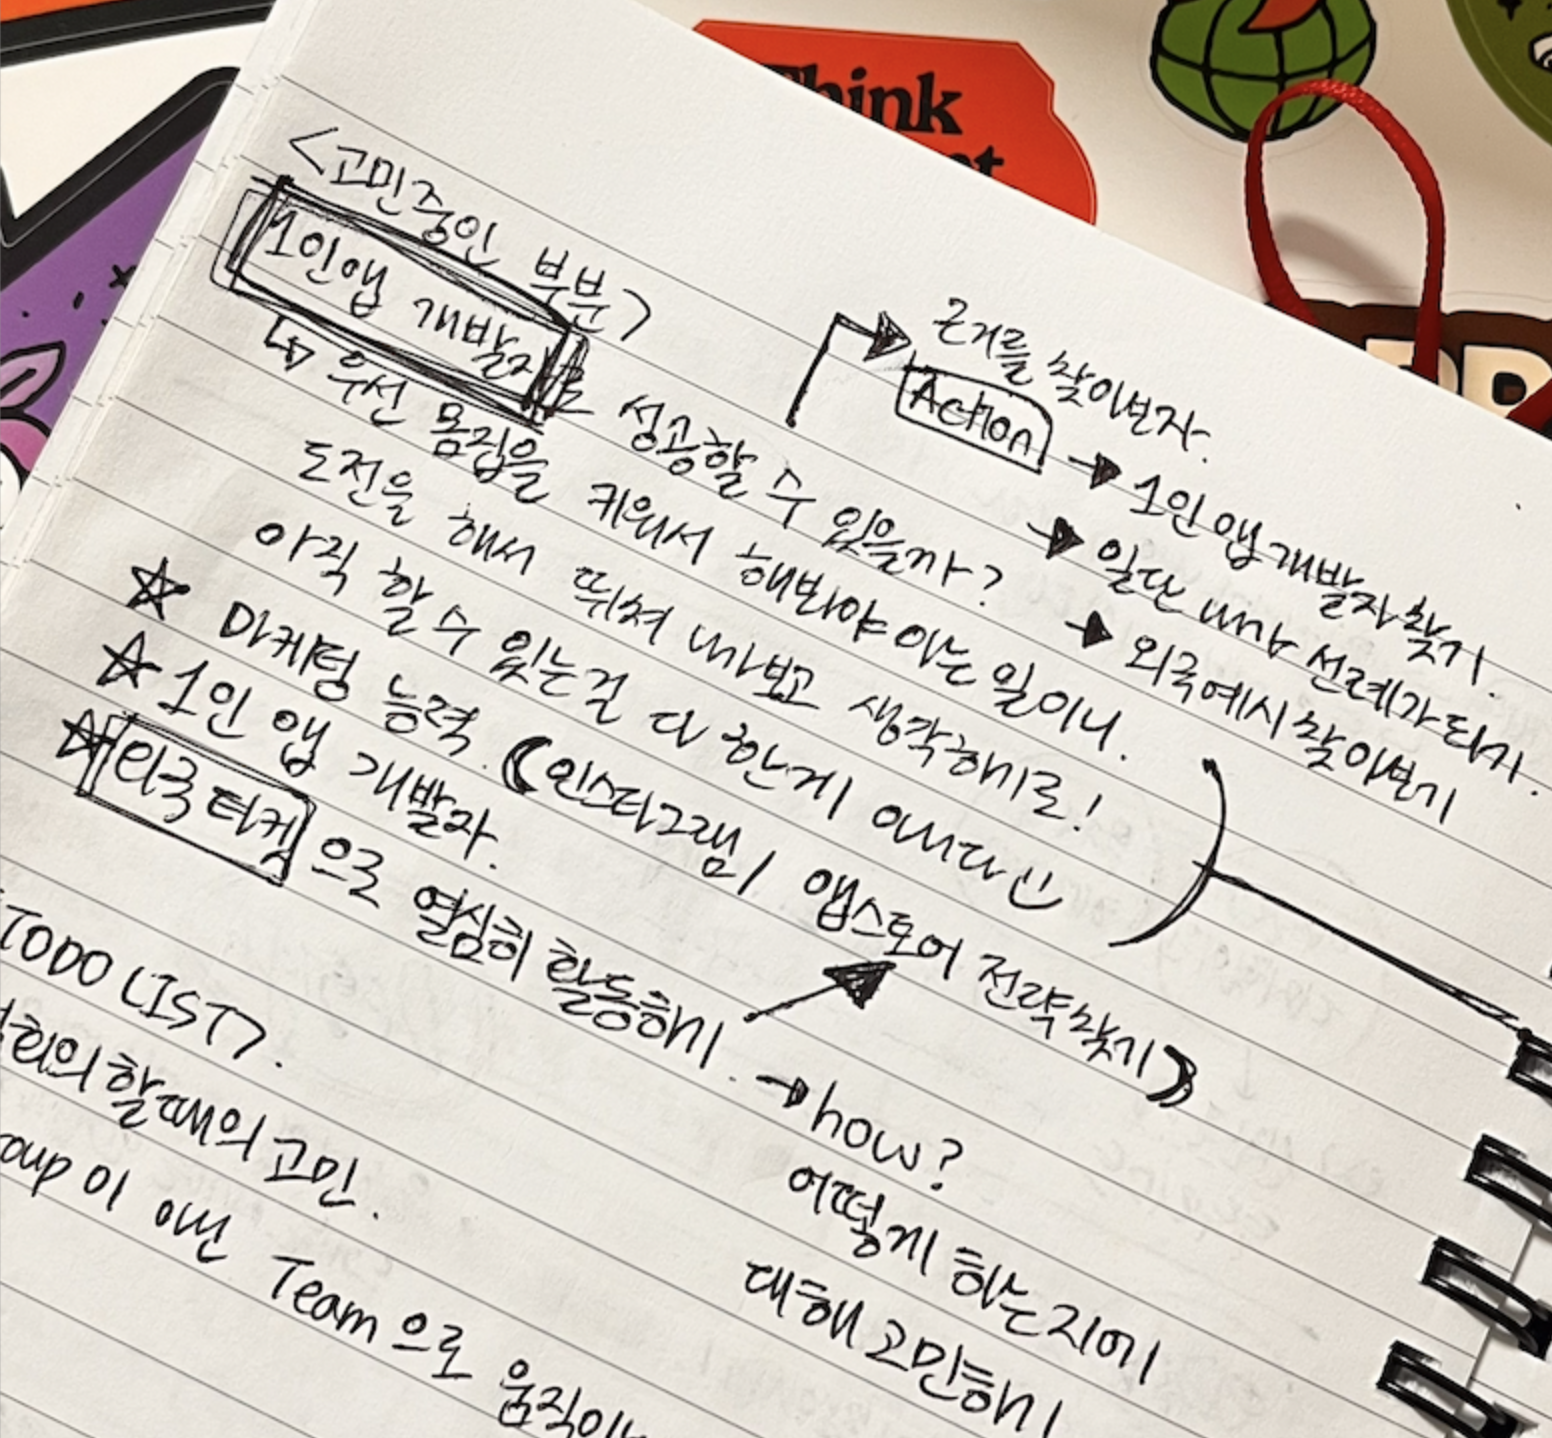 <고민중인 부분>
1인앱 개발자로 성공할 수 있을까?
↳ 우선 몸집을 키워서 해봐야 아는 일이니.
도전을 해서 뛰쳐 나가보고 생각해보기로!
아직 할 수 있는걸 다 한게 아니다
☆ 마케팅 능력. (인스타그램 / 앱스토어 전략찾기)
☆ 1인 앱 개발자.
☆ 외국 타켓 으로 열심히 활동하기
→ how?
어떻게 하는지에
대해 고민하기
근거를 찾아보자.
Action
→ 1인 앱 개발자 찾기.
→ 일단 내가 선례가 되자.
→ 외국예시 찾아보기
TODO LIST>.
회의 할때의 고민.
oup 이 아닌 Team 으로
Think